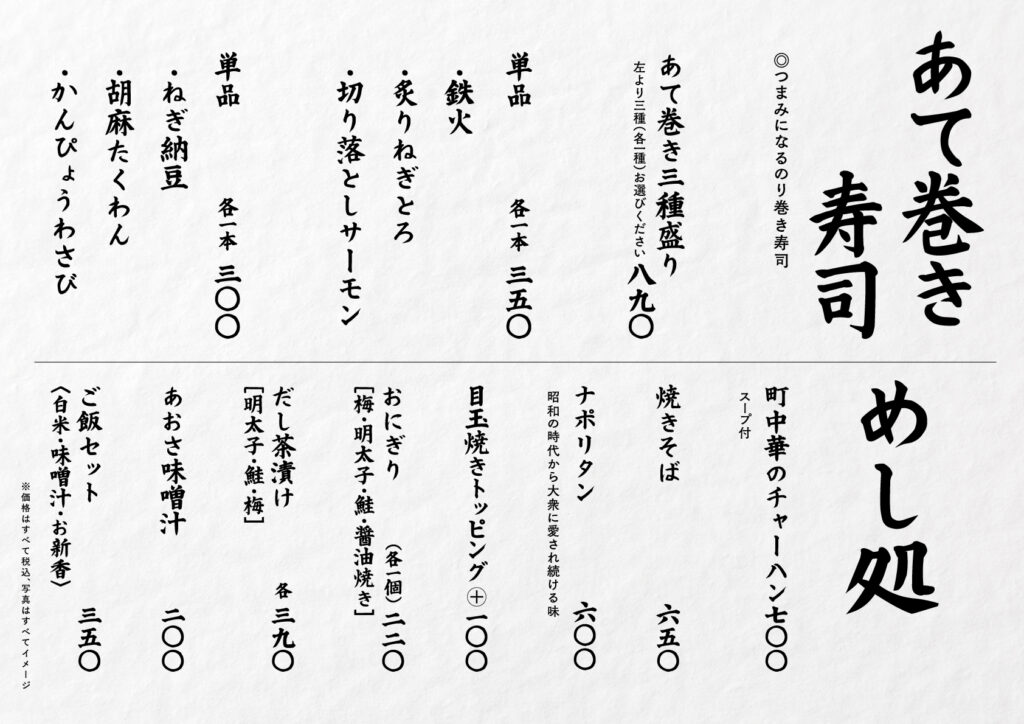 あて巻き
寿司
◎つまみになるのり巻き寿司
あて巻き三種盛り 八九〇
左より三種(各一種)お選びください
単品 各一本 三五〇
・鉄火
・炙りねぎとろ
・切り落としサーモン
単品 各一本 三〇〇
・ねぎ納豆
・胡麻たくわん
・かんぴょうわさび
めし処
町中華のチャーハン 七〇〇
スープ付
焼きそば 六五〇
ナポリタン 六〇〇
昭和の時代から大衆に愛され続ける味
目玉焼きトッピング ㊉一〇〇
おにぎり (各一個) 二二〇
[梅・明太子・鮭・醤油焼き]
だし茶漬け 各 三九〇
[明太子・鮭・梅]
あおさ味噌汁 二〇〇
ご飯セット 三五〇
〈白米・味噌汁・お新香〉
※価格はすべて税込、写真はすべてイメージ